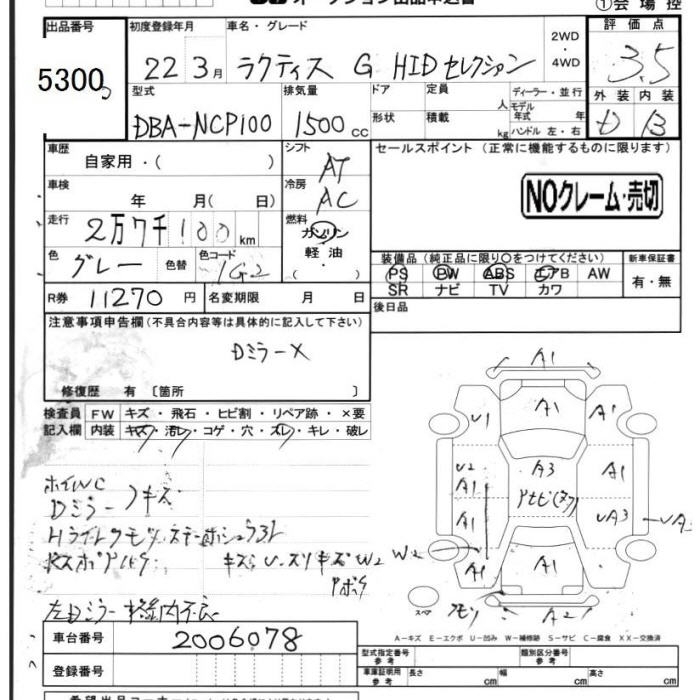 オークション出品申込書
①会場控
出品番号 5300
初度登録年月 22 3月
車名・グレード ラクティス G HIDセレクション
2WD・4WD
評価点 3.5
外装 内装 B
型式 DBA-NCP100
排気量 1500cc
ドア 形状
定員 人
積載 kg
ディーラー・並行
モデル年式 年式
ハンドル 左・右
車歴 自家用・( )
シフト AT
車検 年 月( 日)
冷房 AC
走行 2万7千100km
燃料 ガソリン 軽油・( )
色 グレー 色替 色コード 1G2
R券 11270円 名変期限 月 日
セールスポイント(正常に機能するものに限ります)
NOクレーム・売切
装備品(純正品に限り○をつけてください)
新車保証書
PS PW ABS エアB AW
SR ナビ TV カワ
有・無
後日品
注意事項申告欄(不具合内容等は具体的に記入して下さい)
Dミラー×
修復歴 有〔箇所 〕
検査員記入欄 FW キズ・飛石・ヒビ割・リペア跡・×要
内装 キズ・汚レ・コゲ・穴・スレ・キレ・破レ
ホイルC
Dミラーキズ
左Dミラー格納不良
A1
U1 A1 A1
U2 A1 A3 A1
A1 UA3
W2
A1 A1
スペア
A2
A−キズ E−エクボ U−凹み W−補修跡 S−サビ C−腐食 XX−交換済
車台番号 2006078
登録番号
型式指定番号 参考
類別区分番号 参考
車庫証明用 参考 長さ cm 幅 cm 高さ cm
希望出品コーナー